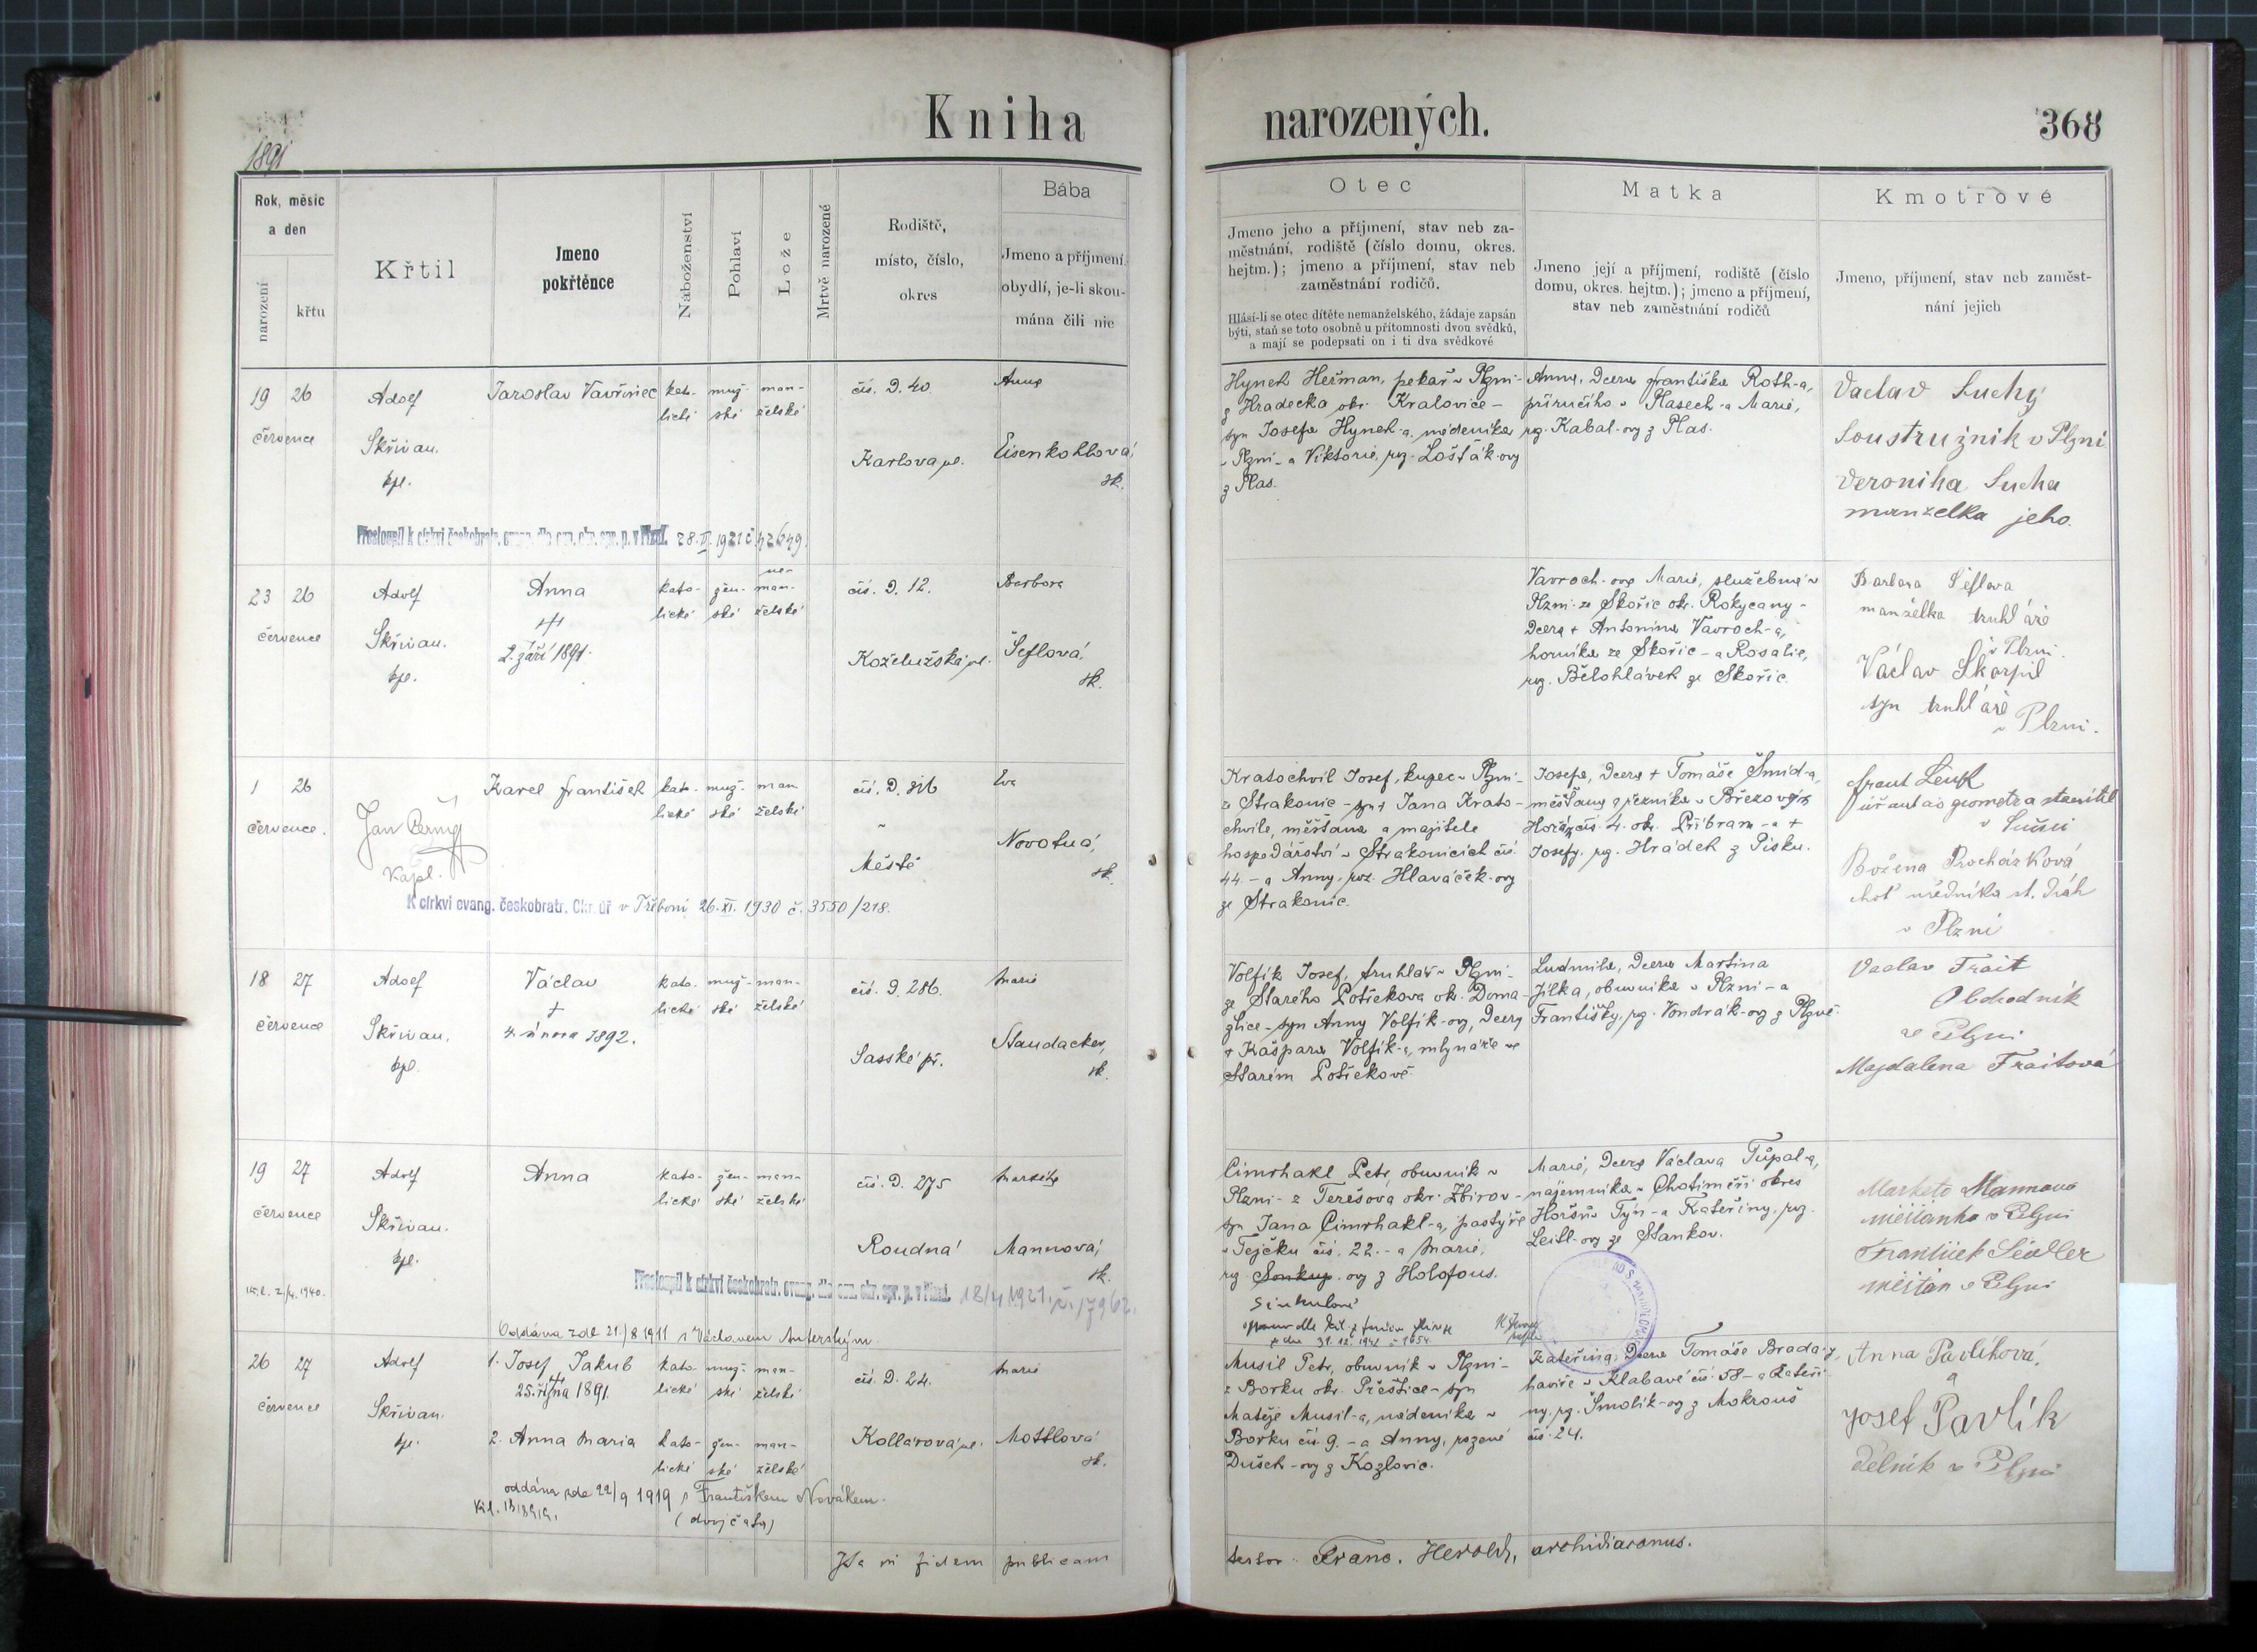 Kniha narozených.
368
1891
Rok, měsíc
a den
narození
křtu
Křtil
Jmeno
pokřtěnce
Náboženství
Pohlaví
Lože
Mrtvě narozené
Rodiště,
místo, číslo,
okres
Bába
Jmeno a příjmení,
obydlí, je-li skou-
mána čili nic
Otec
Jmeno jeho a příjmení, stav neb za-
městnání, rodiště (číslo domu, okres.
hejtm.); jmeno a příjmení, stav neb
zaměstnání rodičů.
Hlásí-li se otec dítěte nemanželského, žádaje zapsán
býti, staň se toto osobně u přítomnosti dvou svědků,
a mají se podepsati on i ti dva svědkové
Matka
Jmeno její a příjmení, rodiště (číslo
domu, okres. hejtm.); jmeno a příjmení,
stav neb zaměstnání rodičů
Kmotrové
Jmeno, příjmení, stav neb zaměst-
nání jejich
19 26
července
Adolf
Skřivan.
kpl.
Jaroslav Vavřinec
kato- muž- man-
lické ské želské
čís. D. 40.
Karlova ul.
Anna
Eisenkohlová,
zk.
Přestoupil k církvi českobratr. evang. dle ozn. okr. spr. p. v Plzni. 28. 1921 č. 42649.
Hynek Heřman, pekař v Plzni-
z Hradecka okr. Kralovice-
syn Josefa Hynek-a, nádeníka
v Plzni- a Viktorie, roz. Lošťák-ovy
z Plas.
Anna, dcera Františka Roth-a,
příručího v Plasech- a Marie,
roz. Kabal-ovy z Plas.
Vaclav Suchý
Soustružnik v Plzni
Veronika Sucha
manželka jeho.
23 26
července
Adolf
Skřivan.
kpl.
Anna
2. září 1891.
ne-
kato- žen- man-
lické ské želské
čís. D. 12.
Koželužská ul.
Barbora
Šeflová,
zk.
Vavroch-ova Marie, služebná v
Plzni- ze Skořic okr. Rokycany-
dcera + Antonína Vavroch-a,
horníka ze Skořic- a Rosalie,
roz. Bělohlávek ze Skořic.
Barbora Šeflova
manželka truhláře
v Plzni.
Václav Škarpil
syn truhláře
v Plzni.
1 26
července.
Jan Černý
Kapl.
Karel František
kato- muž- man
lické ské želské
čís. D. 316
v
Městě
Eva
Novotná,
zk.
K církvi evang. českobratr. Okr. úř v Třeboni 26. XI. 1930 č. 3550/218.
Kratochvíl Josef, kupec v Plzni-
ze Strakonic- syn + Jana Krato-
chvíle, měšťana a majitele
hospodářství v Strakonicích čís.
44.- a Anny, roz. Hlaváček-ovy
ze Strakonic.
Josefa, dcera + Tomáše Šmíd-a,
měšťana a řezníka v Březových
Horách čís. 4. okr. Příbram- a +
Josefy, roz. Hrádek z Písku.
v Sušici
Božena Procházková
choť uředníka st. drah
v Plzni
18 27
července
Adolf
Skřivan.
kpl.
Václav
+
4. února 1892.
kato- muž- man-
lické ské želské
čís. D. 286.
Sasské př.
Marie
Staudacher,
zk.
Volfík Josef, truhlář v Plzni-
ze Starého Potčekova okr. Doma-
žlice- syn Anny Volfík-ovy, dcery
+ Kašpara Volfík-a, mlynáře ve
Starém Potčekově.
Ludmila, dcera Martina
Jílka, obuvníka v Plzni- a
Františky, roz. Vondrák-ovy z Plzně.
Vaclav Frait
Obchodník
ve Plzni
Magdalena Fraitová
19 27
července
Adolf
Skřivan.
kpl.
Anna
kato- žen- man-
lické ské želské
čís. D. 275
Roudná
Markéta
Mannová,
zk.
Přestoupil k církvi českobratr. evang. dle ozn. okr. spr. p. v Plzni. 18/4 1921, č. 17962.
Oddána zde 21./8 1911 s Václavem
Cimrhakl Petr, obuvník v
Plzni- z Terešova okr. Zbirov-
syn Jana Cimrhakl-a, pastýře
v Tejčku čís. 22.- a Marie,
roz. Sonkup-ovy z Holofous.
Sinkulové
31. 12. 1941 č. 1654.
Marie, dcera Václava Tůpal-a,
nájemníka v Chotiměři okres
Horšův Týn- a Kateřiny, roz.
Leitl-ovy ze Stankov.
Marketa Mannova
měšťanka v Plzni
František Siedler
měšťan v Plzni
26 27
července
Adolf
Skřivan.
kpl.
1. Josef Jakub
25. října 1891.
kato- muž- man-
lické ské želské
2. Anna Maria
kato- žen- man-
lické ské želské
oddána zde 22/9 1919 s Františkem Novákem.
(dvojčata)
čís. D. 24.
Kollárová ul.
Marie
Mottlová
zk.
Musil Petr, obuvník v Plzni-
z Borku okr. Přeštice- syn
Matěje Musil-a, nádeníka v
Borku čís. 9.- a Anny, rozené
Dušek-ovy z Kozlovic.
Kateřina, dcera Tomáše Brada-y,
havíře v Klabavě čís. 58- a Kateři-
ny, roz. Smolík-ovy z Mokrouš
čís. 24.
Anna Pavlíková,
a
Josef Pavlík
dělník v Plzni
Ita in fidem publicam
testor: Franc. Herold, archidiaconus.